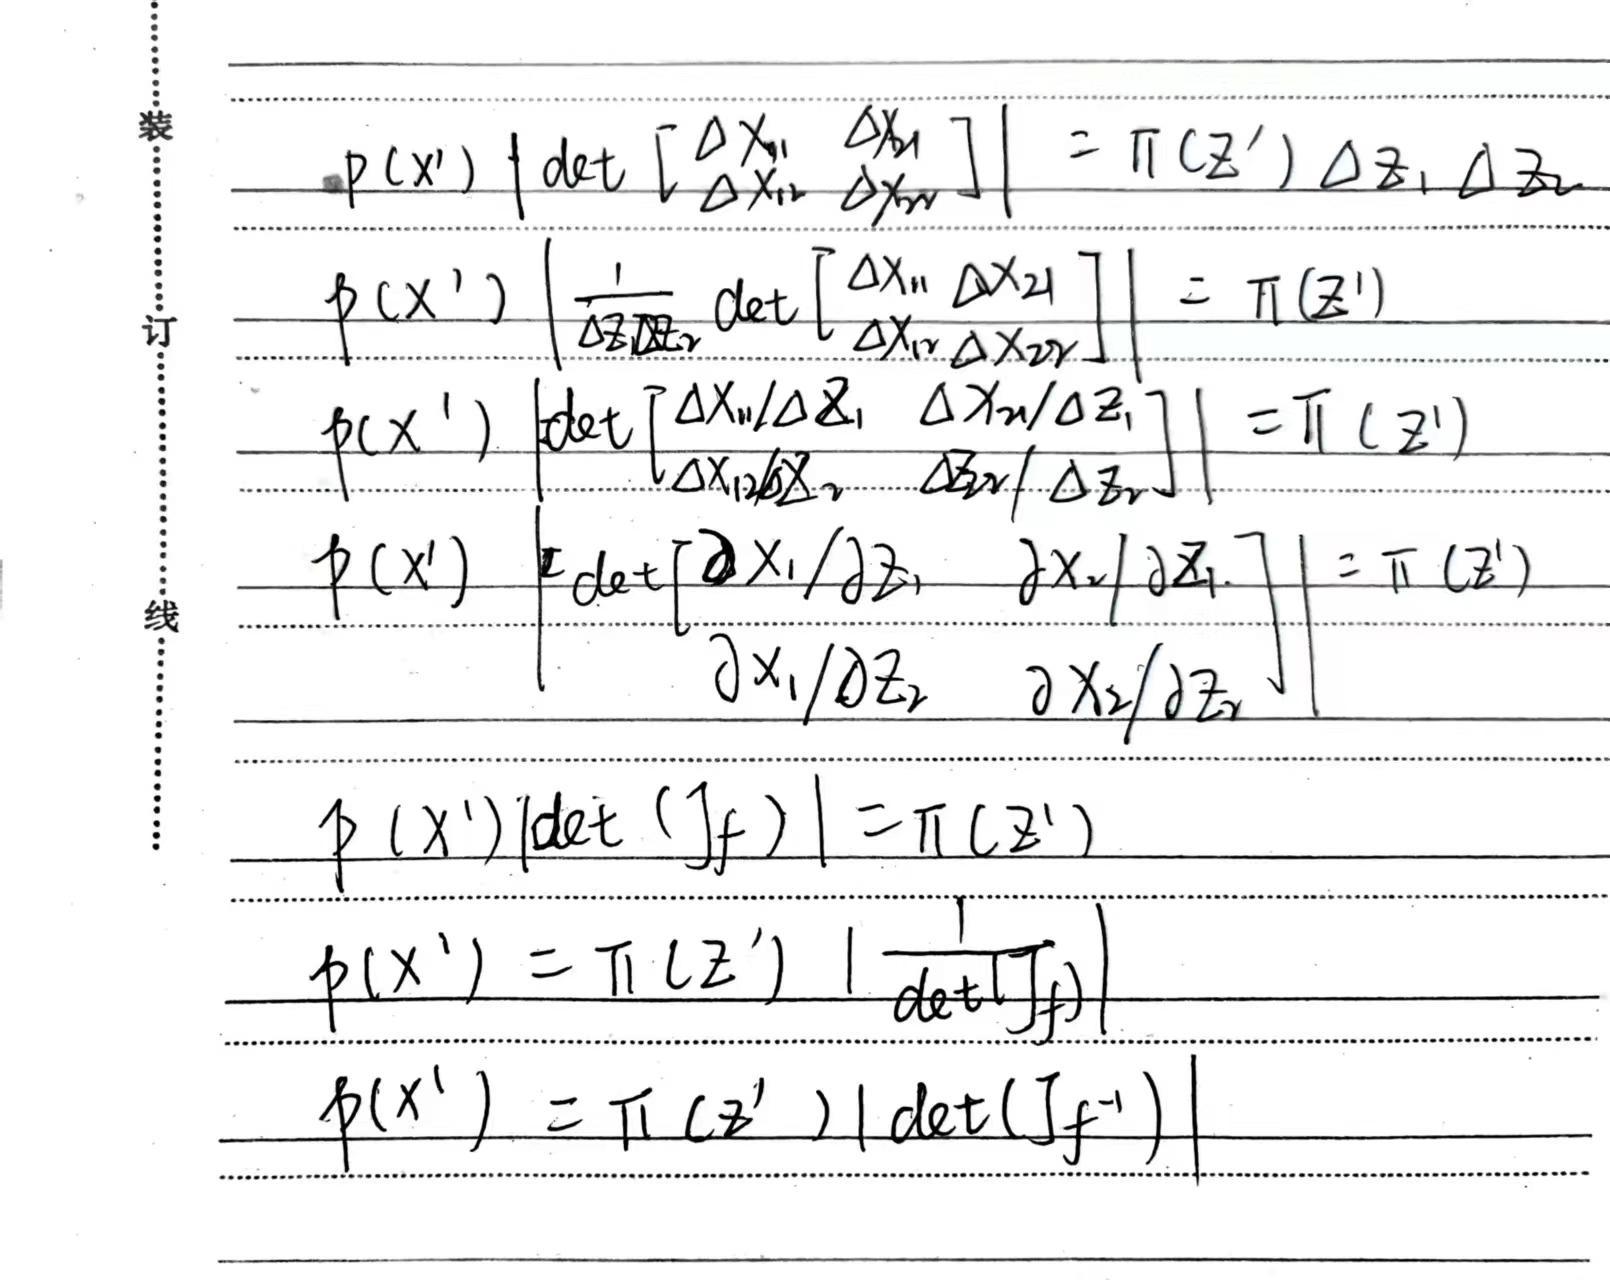 装
订
线
p(x') |det [Δx₁₁ Δx₂₁
Δx₁₂ Δx₂₂]| = π(z') Δz₁ Δz₂
p(x') |1/(Δz₁Δz₂) det [Δx₁₁ Δx₂₁
Δx₁₂ Δx₂₂]| = π(z')
p(x') |det [Δx₁₁/Δz₁ Δx₂₁/Δz₁
Δx₁₂/Δz₂ Δz₂₂/Δz₂]| = π(z')
p(x') |det [∂x₁/∂z₁ ∂x₂/∂z₁
∂x₁/∂z₂ ∂x₂/∂z₂]| = π(z')
p(x') |det(Jf)| = π(z')
p(x') = π(z') |1/det(Jf)|
p(x') = π(z') |det(Jf⁻¹)|